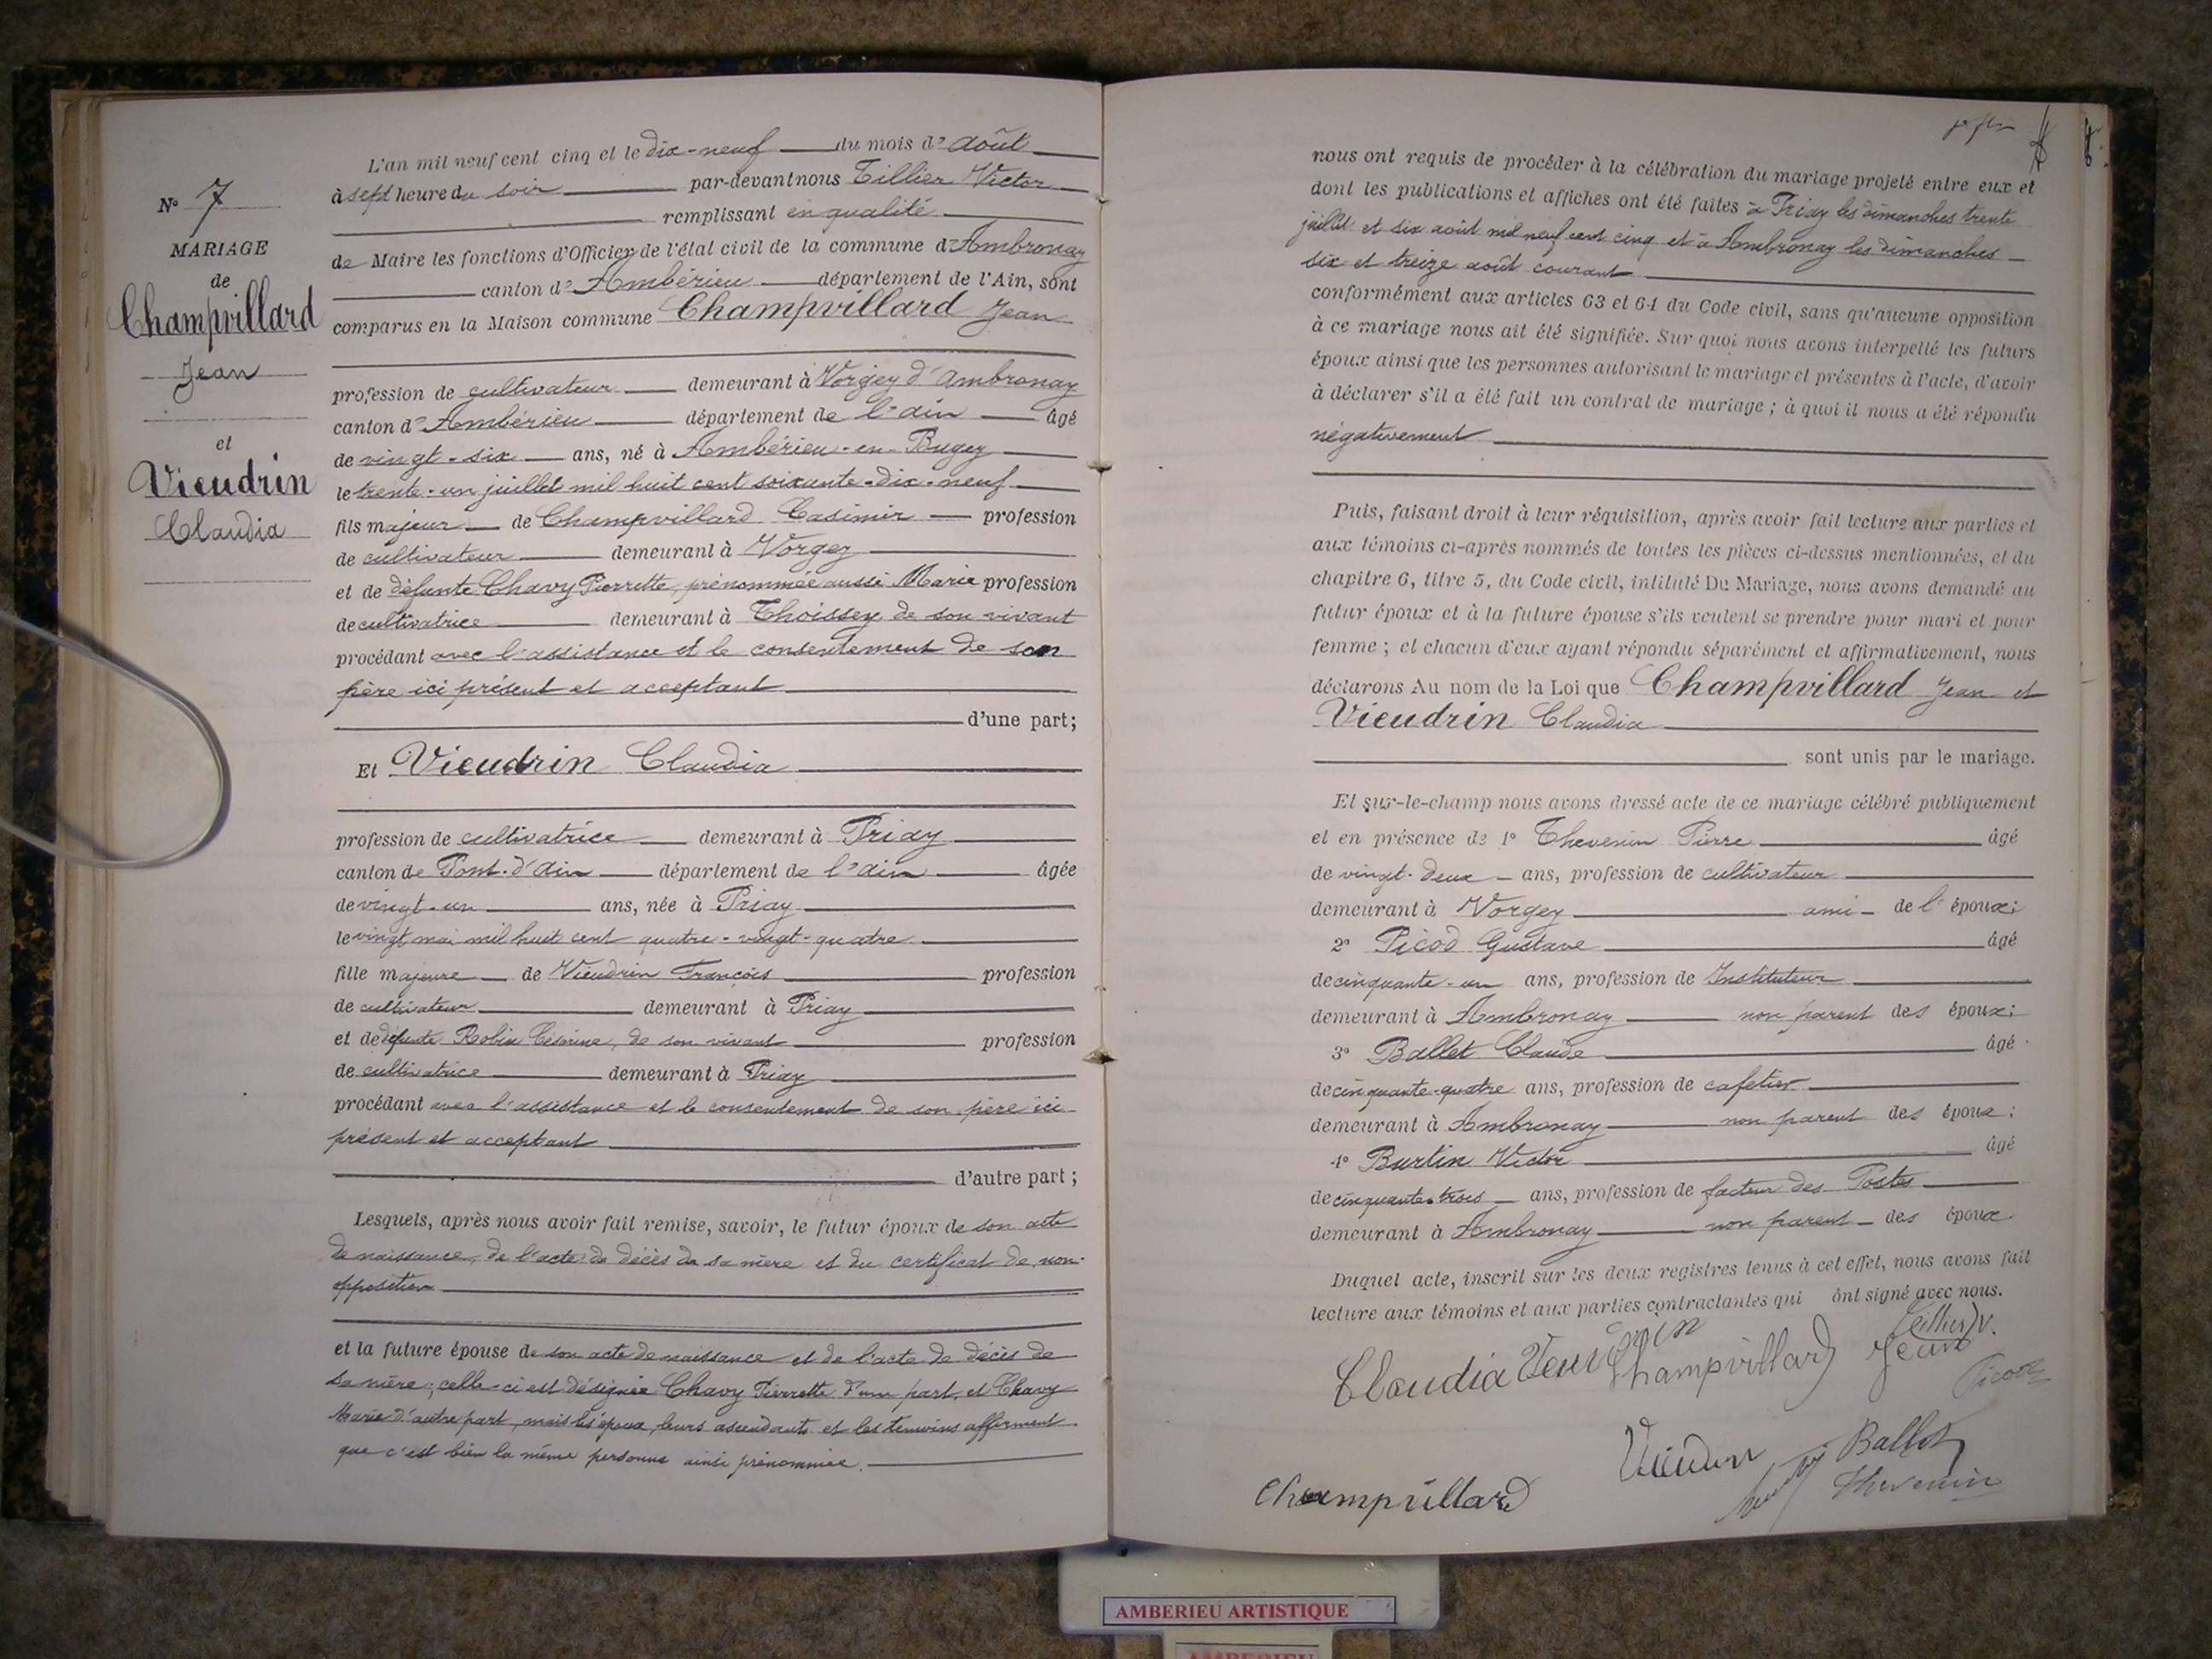 N° 7
MARIAGE
de
Champvillard
Jean
et
Vieudrin
Claudia
L'an mil neuf cent cinq et le dix-neuf du mois d'août
à sept heure du soir par-devant nous Tillier Victor
remplissant en qualité
de Maire les fonctions d'Officier de l'état civil de la commune d'Ambronay
canton d'Ambérieu département de l'Ain, sont
comparus en la Maison commune Champvillard Jean
profession de cultivateur demeurant à Vorgey d'Ambronay
canton d'Ambérieu département de l'ain âgé
de vingt-six ans, né à Ambérieu-en-Bugey
le trente-un juillet mil huit cent soixante-dix-neuf
fils majeur de Champvillard Casimir profession
de cultivateur demeurant à Vorgey
et de défunte Chavy Pierrette, prénommée aussi Marie profession
de cultivatrice demeurant à Thoissey de son vivant
procédant avec l'assistance et le consentement de son
père ici présent et acceptant
d'une part;
Et Vieudrin Claudia
profession de cultivatrice demeurant à Priay
canton de Pont-d'Ain département de l'ain âgée
de vingt-un ans, née à Priay
le vingt mai mil huit cent quatre-vingt-quatre
fille majeure de Vieudrin François profession
de cultivateur demeurant à Priay
et de défunte Robin Césarine, de son vivant profession
de cultivatrice demeurant à Priay
procédant avec l'assistance et le consentement de son père ici
présent et acceptant
d'autre part;
Lesquels, après nous avoir fait remise, savoir, le futur époux de son acte
de naissance, de l'acte de décès de sa mère et du certificat de non-
opposition
et la future épouse de son acte de naissance et de l'acte de décès de
sa mère; celle-ci est désignée Chavy Pierrette d'une part, et Chavy
Marie d'autre part, mais les époux, leurs ascendants et les témoins affirment
que c'est bien la même personne ainsi prénommée.
nous ont requis de procéder à la célébration du mariage projeté entre eux et
dont les publications et affiches ont été faites à Priay les dimanches trente
juillet et six août mil neuf cent cinq et à Ambronay les dimanches
six et treize août courant
conformément aux articles 63 et 64 du Code civil, sans qu'aucune opposition
à ce mariage nous ait été signifiée. Sur quoi nous avons interpellé les futurs
époux ainsi que les personnes autorisant le mariage et présentes à l'acte, d'avoir
à déclarer s'il a été fait un contrat de mariage; à quoi il nous a été répondu
négativement
Puis, faisant droit à leur réquisition, après avoir fait lecture aux parties et
aux témoins ci-après nommés de toutes les pièces ci-dessus mentionnées, et du
chapitre 6, titre 5, du Code civil, intitulé Du Mariage, nous avons demandé au
futur époux et à la future épouse s'ils veulent se prendre pour mari et pour
femme; et chacun d'eux ayant répondu séparément et affirmativement, nous
déclarons Au nom de la Loi que Champvillard Jean et
Vieudrin Claudia
sont unis par le mariage.
Et sur-le-champ nous avons dressé acte de ce mariage célébré publiquement
et en présence de 1° Thevenin Pierre âgé
de vingt-deux ans, profession de cultivateur
demeurant à Vorgey ami de l'époux;
2° Picod Gustave âgé
de cinquante-un ans, profession de Instituteur
demeurant à Ambronay non parent des époux;
3° Ballet Claude âgé
de cinquante-quatre ans, profession de cafetier
demeurant à Ambronay non parent des époux;
4° Burtin Victor âgé
de cinquante-trois ans, profession de facteur des Postes
demeurant à Ambronay non parent des époux
Duquel acte, inscrit sur les deux registres tenus à cet effet, nous avons fait
lecture aux témoins et aux parties contractantes qui ont signé avec nous.
Tillier V.
Claudia Champvillard Jean
Picod
Ballet
Thevenin
Champvillard
AMBERIEU ARTISTIQUE
AMBERIEU